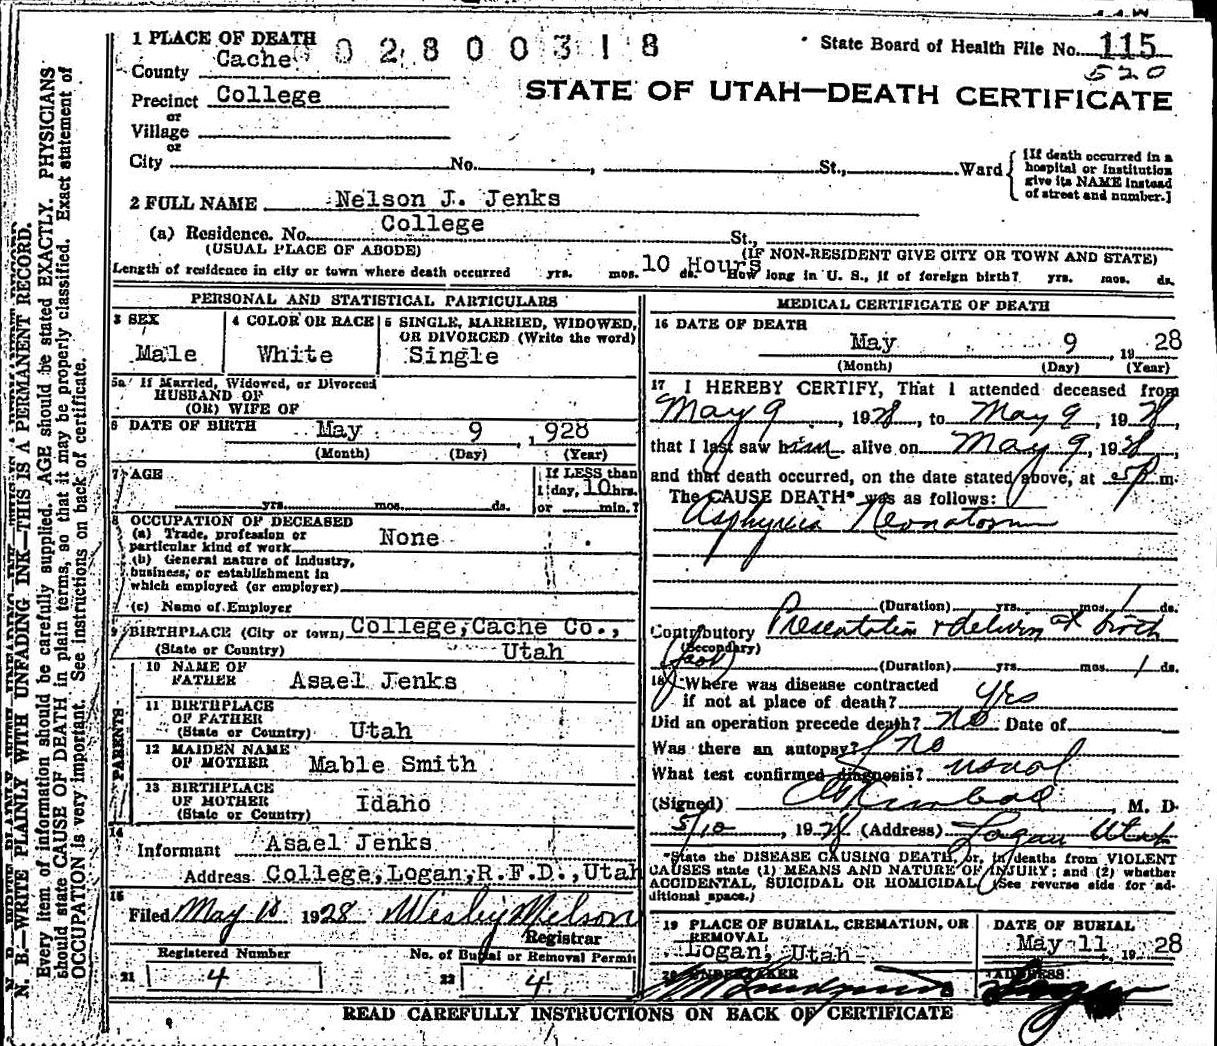 1 PLACE OF DEATH
0 2 8 0 0 3 1 8
State Board of Health File No. 115
520
County Cache
STATE OF UTAH—DEATH CERTIFICATE
Precinct College
or
Village
or
City No. , St., Ward
[If death occurred in a
hospital or institution
give its NAME instead
of street and number.]
2 FULL NAME Nelson J. Jenks
(a) Residence. No. College St.,
(USUAL PLACE OF ABODE) (IF NON-RESIDENT GIVE CITY OR TOWN AND STATE)
Length of residence in city or town where death occurred yrs. mos. 10 Hours ds. How long in U. S., if of foreign birth? yrs. mos. ds.
PERSONAL AND STATISTICAL PARTICULARS
3 SEX
Male
4 COLOR OR RACE
White
5 SINGLE, MARRIED, WIDOWED,
OR DIVORCED (Write the word)
Single
5a If Married, Widowed, or Divorced
HUSBAND OF
(OR) WIFE OF
6 DATE OF BIRTH May 9 , 1928
(Month) (Day) (Year)
7 AGE
yrs. mos. ds.
If LESS than
1 day, 10 hrs.
or min.?
8 OCCUPATION OF DECEASED
(a) Trade, profession or
particular kind of work None
(b) General nature of industry,
business, or establishment in
which employed (or employer)
(c) Name of Employer
9 BIRTHPLACE (City or town) College, Cache Co.,
(State or Country) Utah
PARENTS
10 NAME OF
FATHER Asael Jenks
11 BIRTHPLACE
OF FATHER
(State or Country) Utah
12 MAIDEN NAME
OF MOTHER Mable Smith
13 BIRTHPLACE
OF MOTHER
(State or Country) Idaho
14
Informant Asael Jenks
Address College, Logan, R.F.D., Utah
15
Filed May 10 1928 Wesley Nelson
Registrar
Registered Number
21 4
No. of Burial or Removal Permit
22 4
MEDICAL CERTIFICATE OF DEATH
16 DATE OF DEATH
May 9 , 19 28
(Month) (Day) (Year)
17 I HEREBY CERTIFY, That I attended deceased from
May 9 , 1928, to May 9 , 1928,
that I last saw him alive on May 9 , 1928,
and that death occurred, on the date stated above, at 5 p m.
The CAUSE DEATH* was as follows:
Asphyxia Neonatorum
(Duration) yrs. mos. 1 ds.
Contributory Presentation & delivery at birth
(Secondary)
(Duration) yrs. mos. 1 ds.
18 Where was disease contracted
if not at place of death? yes
Did an operation precede death? No Date of
Was there an autopsy? no
What test confirmed diagnosis? usual
(Signed) , M. D.
5/10 , 1928 (Address) Logan Utah
*State the DISEASE CAUSING DEATH, or, in deaths from VIOLENT
CAUSES state (1) MEANS AND NATURE OF INJURY; and (2) whether
ACCIDENTAL, SUICIDAL OR HOMICIDAL. (See reverse side for ad-
ditional space.)
19 PLACE OF BURIAL, CREMATION, OR
REMOVAL
Logan, Utah
DATE OF BURIAL
May 11, 19 28
20 UNDERTAKER
ADDRESS
READ CAREFULLY INSTRUCTIONS ON BACK OF CERTIFICATE
N. B.—WRITE PLAINLY WITH UNFADING INK—THIS IS A PERMANENT RECORD.
Every item of information should be carefully supplied. AGE should be stated EXACTLY. PHYSICIANS
should state CAUSE OF DEATH in plain terms, so that it may be properly classified. Exact statement of
OCCUPATION is very important. See instructions on back of certificate.